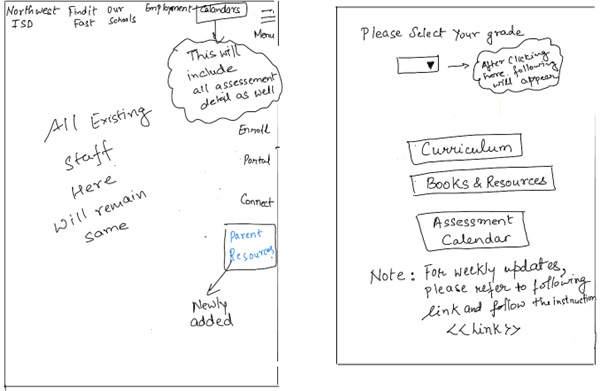 Northwest ISD
Findit Fast
Our Schools
Employment
Calendars
Menu
This will
include
all assessement
detail as well
All Existing
Staff
Here
Will remain
same
Enroll
Portal
Connect
Parent
Resources
Newly
added
Please Select Your grade
After Clicking
here following
will appear
Curriculum
Books & Resources
Assessment
Calendar
Note: For weekly updates,
please refer to following
link and follow the instruction
<<link>>